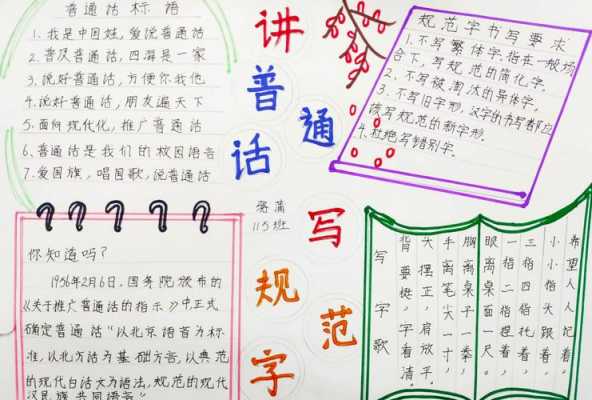 普通话标语
1.我是中国娃,爱说普通话
2.普及普通话,四海是一家
3.说好普通话,方便你我他
4.说好普通话,朋友遍天下
5.面向现代化,推广普通话
6.普通话是我们的校园语言
7.爱国旗,唱国歌,说普通话
讲
普通
话
写
规范
字
115班
规范字书写要求
1.不写繁体字.指在一般场
合下,写规范的简化字.
2.不写被淘汰的异体字.
3.不写旧字形,汉字的书写都应
该写规范的新字形.
4.杜绝写错别字.
你知道吗?
1956年2月6日,国务院颁布的
《关于推广普通话的指示》中正式
确定普通话“以北京语音为标
准,以北方话为基础方言,以典范
的现代白话文为语法,规范的现代
汉民族共同语言”
写字歌
希望人人记着.
小小指头跟着.
三指四指托着,
一指二指捏着,
眼离桌面一尺.
胸离桌子一拳,
手离笔尖一寸,
大摆正,肩放平.
背要挺,字看清.